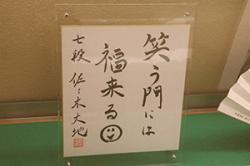 笑う門には
福来る
七段 佐々木大地